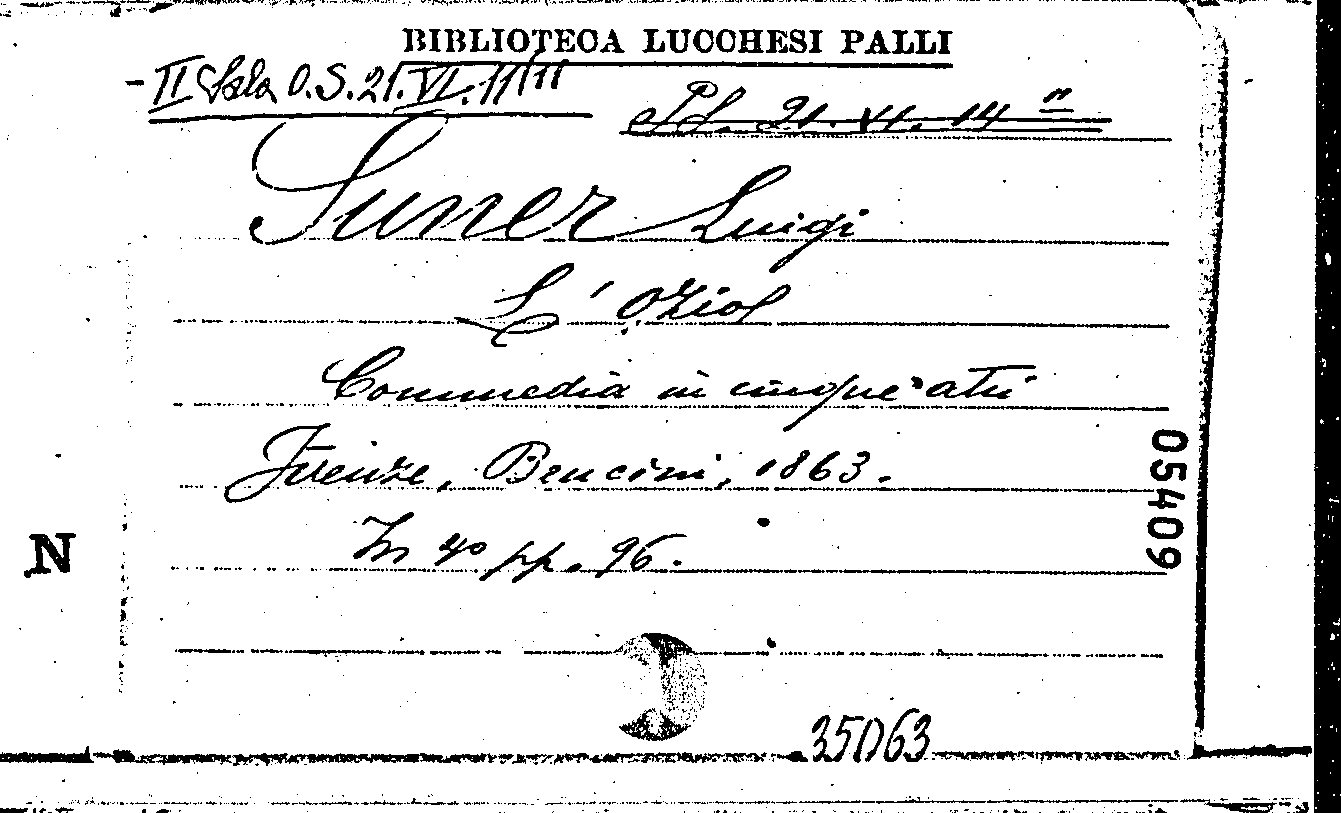 BIBLIOTECA LUCCHESI PALLI
- II Sala O.S. 21. VI. 11/11
Pl. 21. VI. 14 n
Suner Luigi
L'Ozio
Commedia in cinque atti
Firenze, Bencini, 1863.
In 4º pp. 96.
N
05409
35063